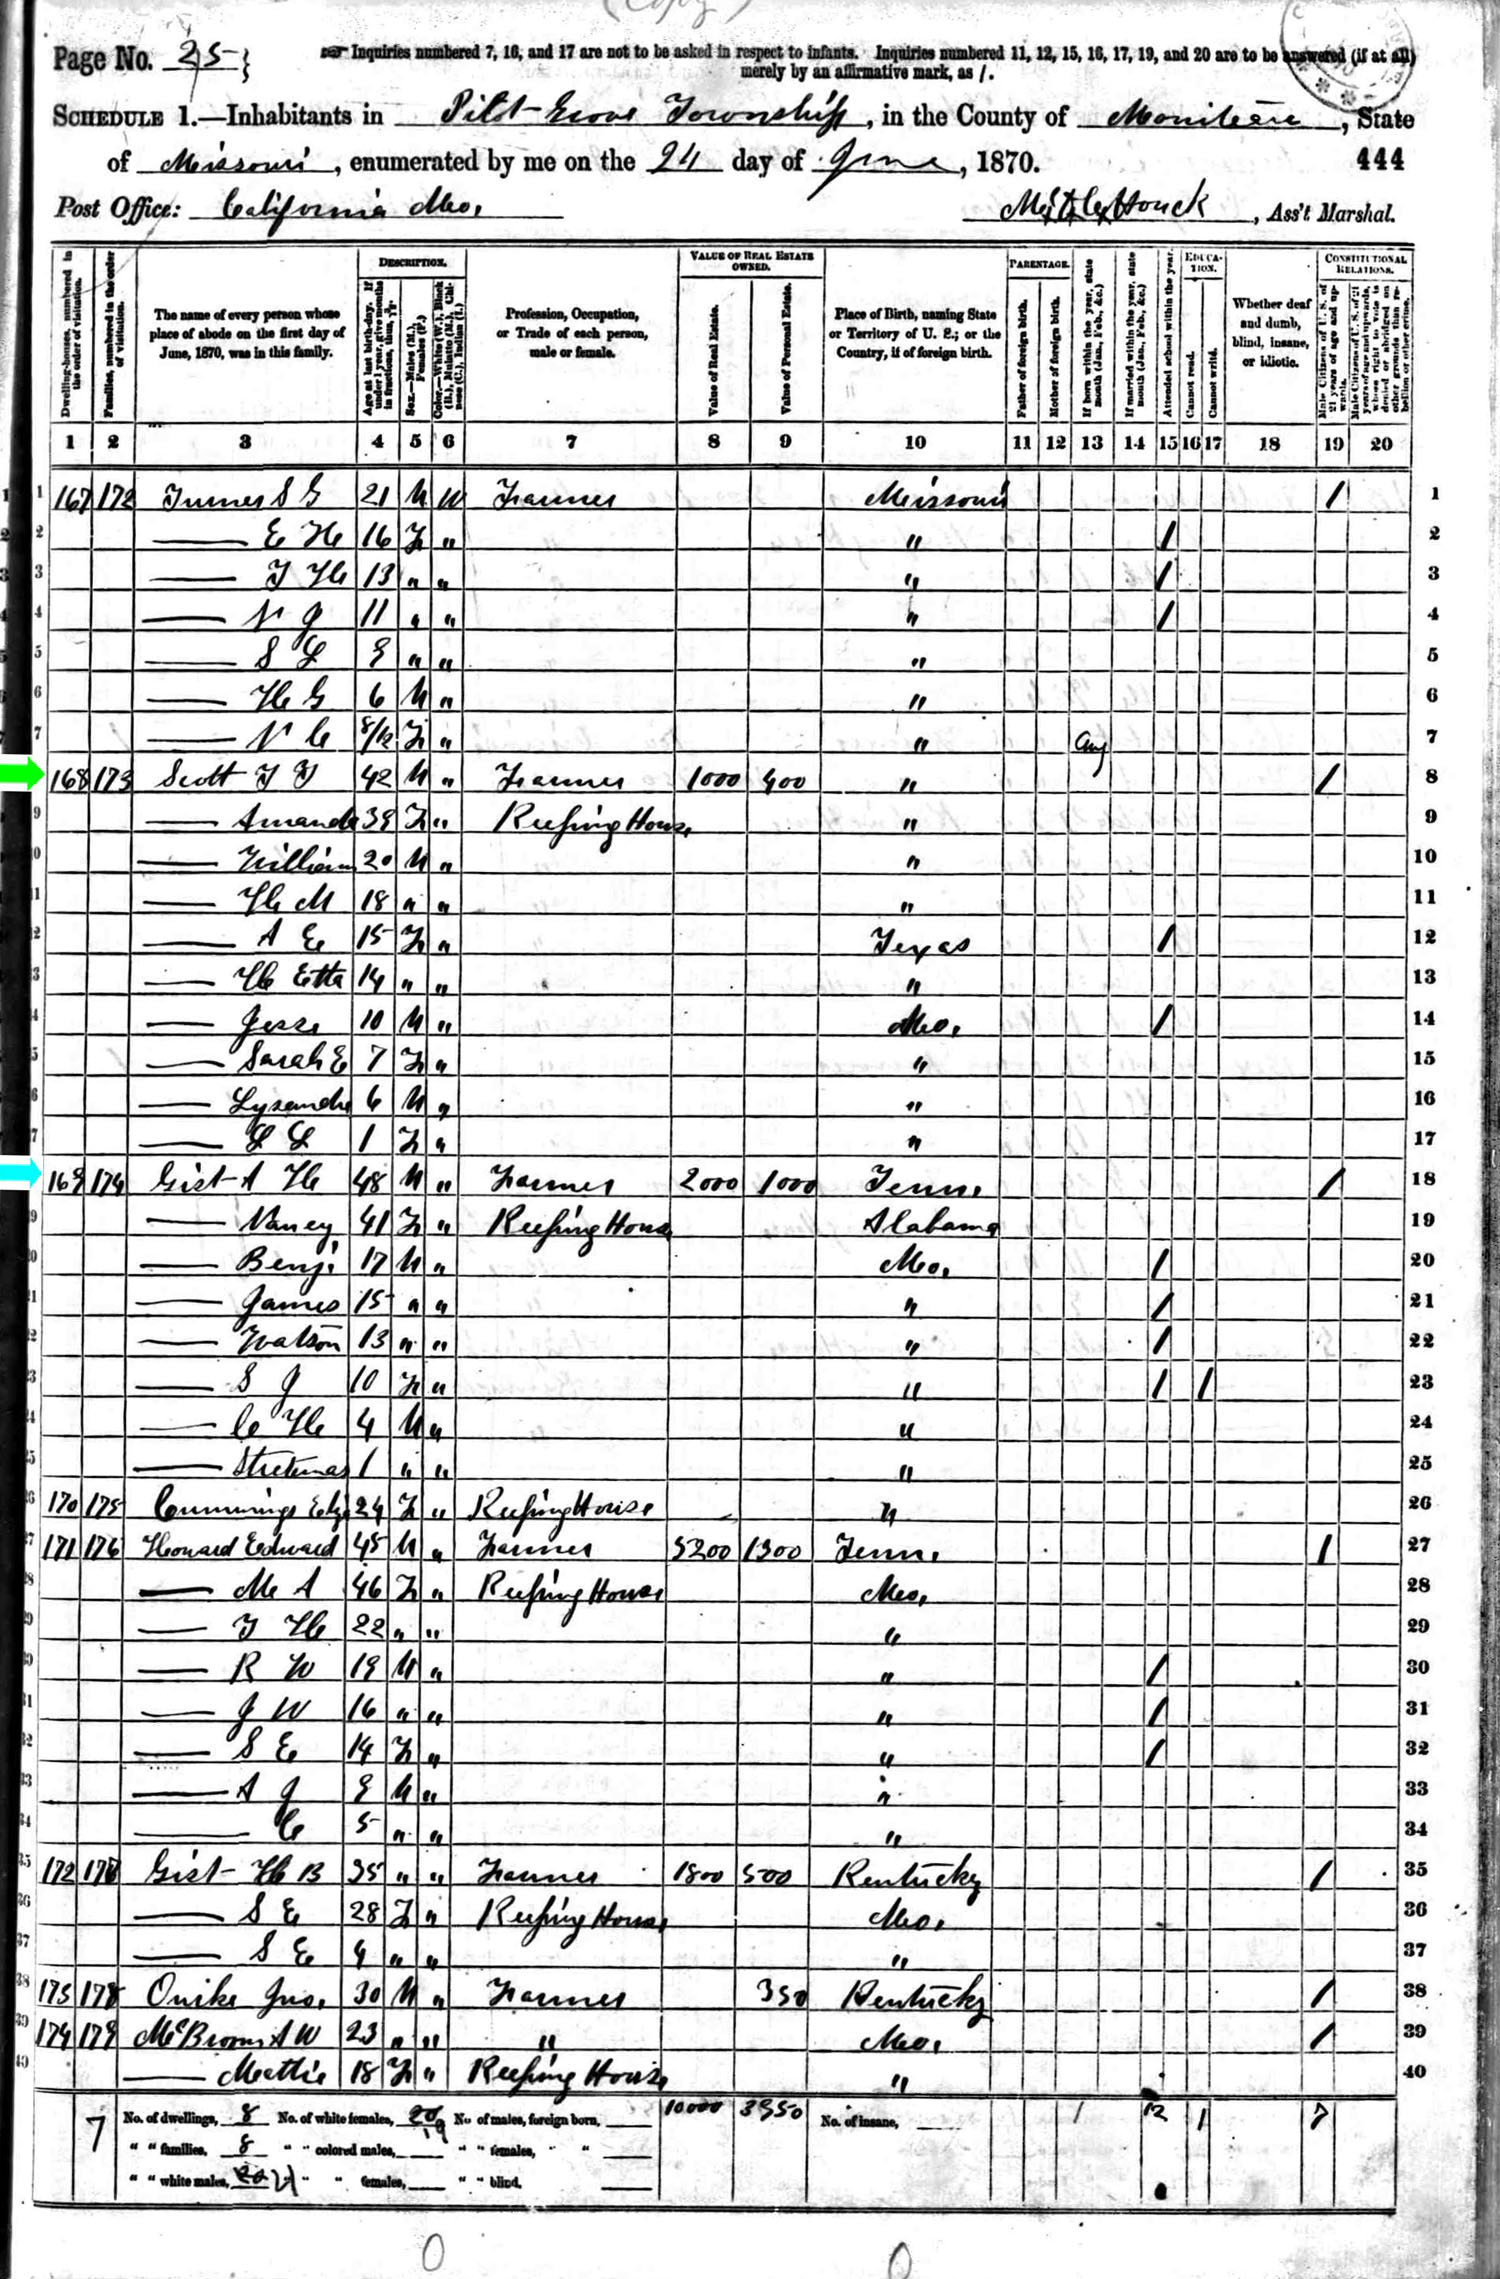 (Copy)
Page No. 25
Inquiries numbered 7, 16, and 17 are not to be asked in respect to infants. Inquiries numbered 11, 12, 15, 16, 17, 19, and 20 are to be answered (if at all)
merely by an affirmative mark, as /.
SCHEDULE 1.—Inhabitants in Pilot Grove Township, in the County of Moniteau, State
of Missouri, enumerated by me on the 24 day of June, 1870. 444
Post Office: California Mo. Houck, Ass't Marshal.
DESCRIPTION. VALUE OF REAL ESTATE OWNED. PARENTAGE. EDUCATION. CONSTITUTIONAL RELATIONS.
Dwelling-houses, numbered in the order of visitation.
Families, numbered in the order of visitation.
The name of every person whose place of abode on the first day of June, 1870, was in this family.
Age at last birth-day. If under 1 year, give months in fractions, thus, 3/12.
Sex.—Males (M.), Females (F.)
Color.—White (W.), Black (B.), Mulatto (M.), Chinese (C.), Indian (I.)
Profession, Occupation, or Trade of each person, male or female.
Value of Real Estate.
Value of Personal Estate.
Place of Birth, naming State or Territory of U. S.; or the Country, if of foreign birth.
Father of foreign birth.
Mother of foreign birth.
If born within the year, state month (Jan., Feb., &c.)
If married within the year, state month (Jan., Feb., &c.)
Attended school within the year.
Cannot read.
Cannot write.
Whether deaf and dumb, blind, insane, or idiotic.
Male Citizens of U. S. of 21 years of age and upwards.
Male Citizens of U. S. of 21 years of age and upwards, whose right to vote is denied or abridged on other grounds than rebellion or other crime.
1 2 3 4 5 6 7 8 9 10 11 12 13 14 15 16 17 18 19 20
1 167 172 Turner S G 21 M W Farmer Missouri / 1
2 —— E H 16 F " " / 2
3 —— T H 13 " " " / 3
4 —— N J 11 " " " / 4
5 —— S L 9 " " " 5
6 —— H G 6 M " " 6
7 —— N C 8/12 F " " Aug 7
168 173 Scott T T 42 M " Farmer 1000 400 " / 8
9 —— Amanda 39 F " Keeping House " 9
—— William 20 M " " 10
—— H M 18 " " " 11
—— A E 15 F " Texas / 12
—— H Etta 14 " " " 13
—— Jesse 10 M " Mo. / 14
—— Sarah E 7 F " " 15
—— Lysander 6 M " " 16
—— L L 1 F " " 17
169 174 Gist A H 48 M " Farmer 2000 1000 Tenn. / 18
—— Nancy 41 F " Keeping House Alabama 19
—— Benj. 17 M " Mo. / 20
—— James 15 " " " / 21
—— Watson 13 " " " / 22
—— S J 10 F " " / / 23
—— C H 4 M " " 24
—— 1 " " " 25
170 175 Cummings Eliz 24 F " Keeping House " 26
171 176 Howard Edward 45 M " Farmer 5200 1300 Tenn. / 27
—— M A 46 F " Keeping House Mo. 28
—— T H 22 " " " 29
—— R W 19 M " " / 30
—— J W 16 " " " / 31
—— S E 14 F " " / 32
—— A J 9 M " " 33
—— C 5 " " " 34
172 177 Gist H B 35 " " Farmer 1800 500 Kentucky / 35
—— S E 28 F " Keeping House Mo. 36
—— S E 4 " " " 37
173 178 Jno. 30 M " Farmer 350 Kentucky / 38
174 179 McBroom A W 23 " " " Mo. / 39
—— Mattie 18 F " Keeping House " 40
7 No. of dwellings, 8 No. of white females, 20 19 No. of males, foreign born, 10000 3950 No. of insane, 1 12 1 7
" " families, 8 " " colored males, " " females, " "
" " white males, 20 21 " " females, " " blind,
0 0